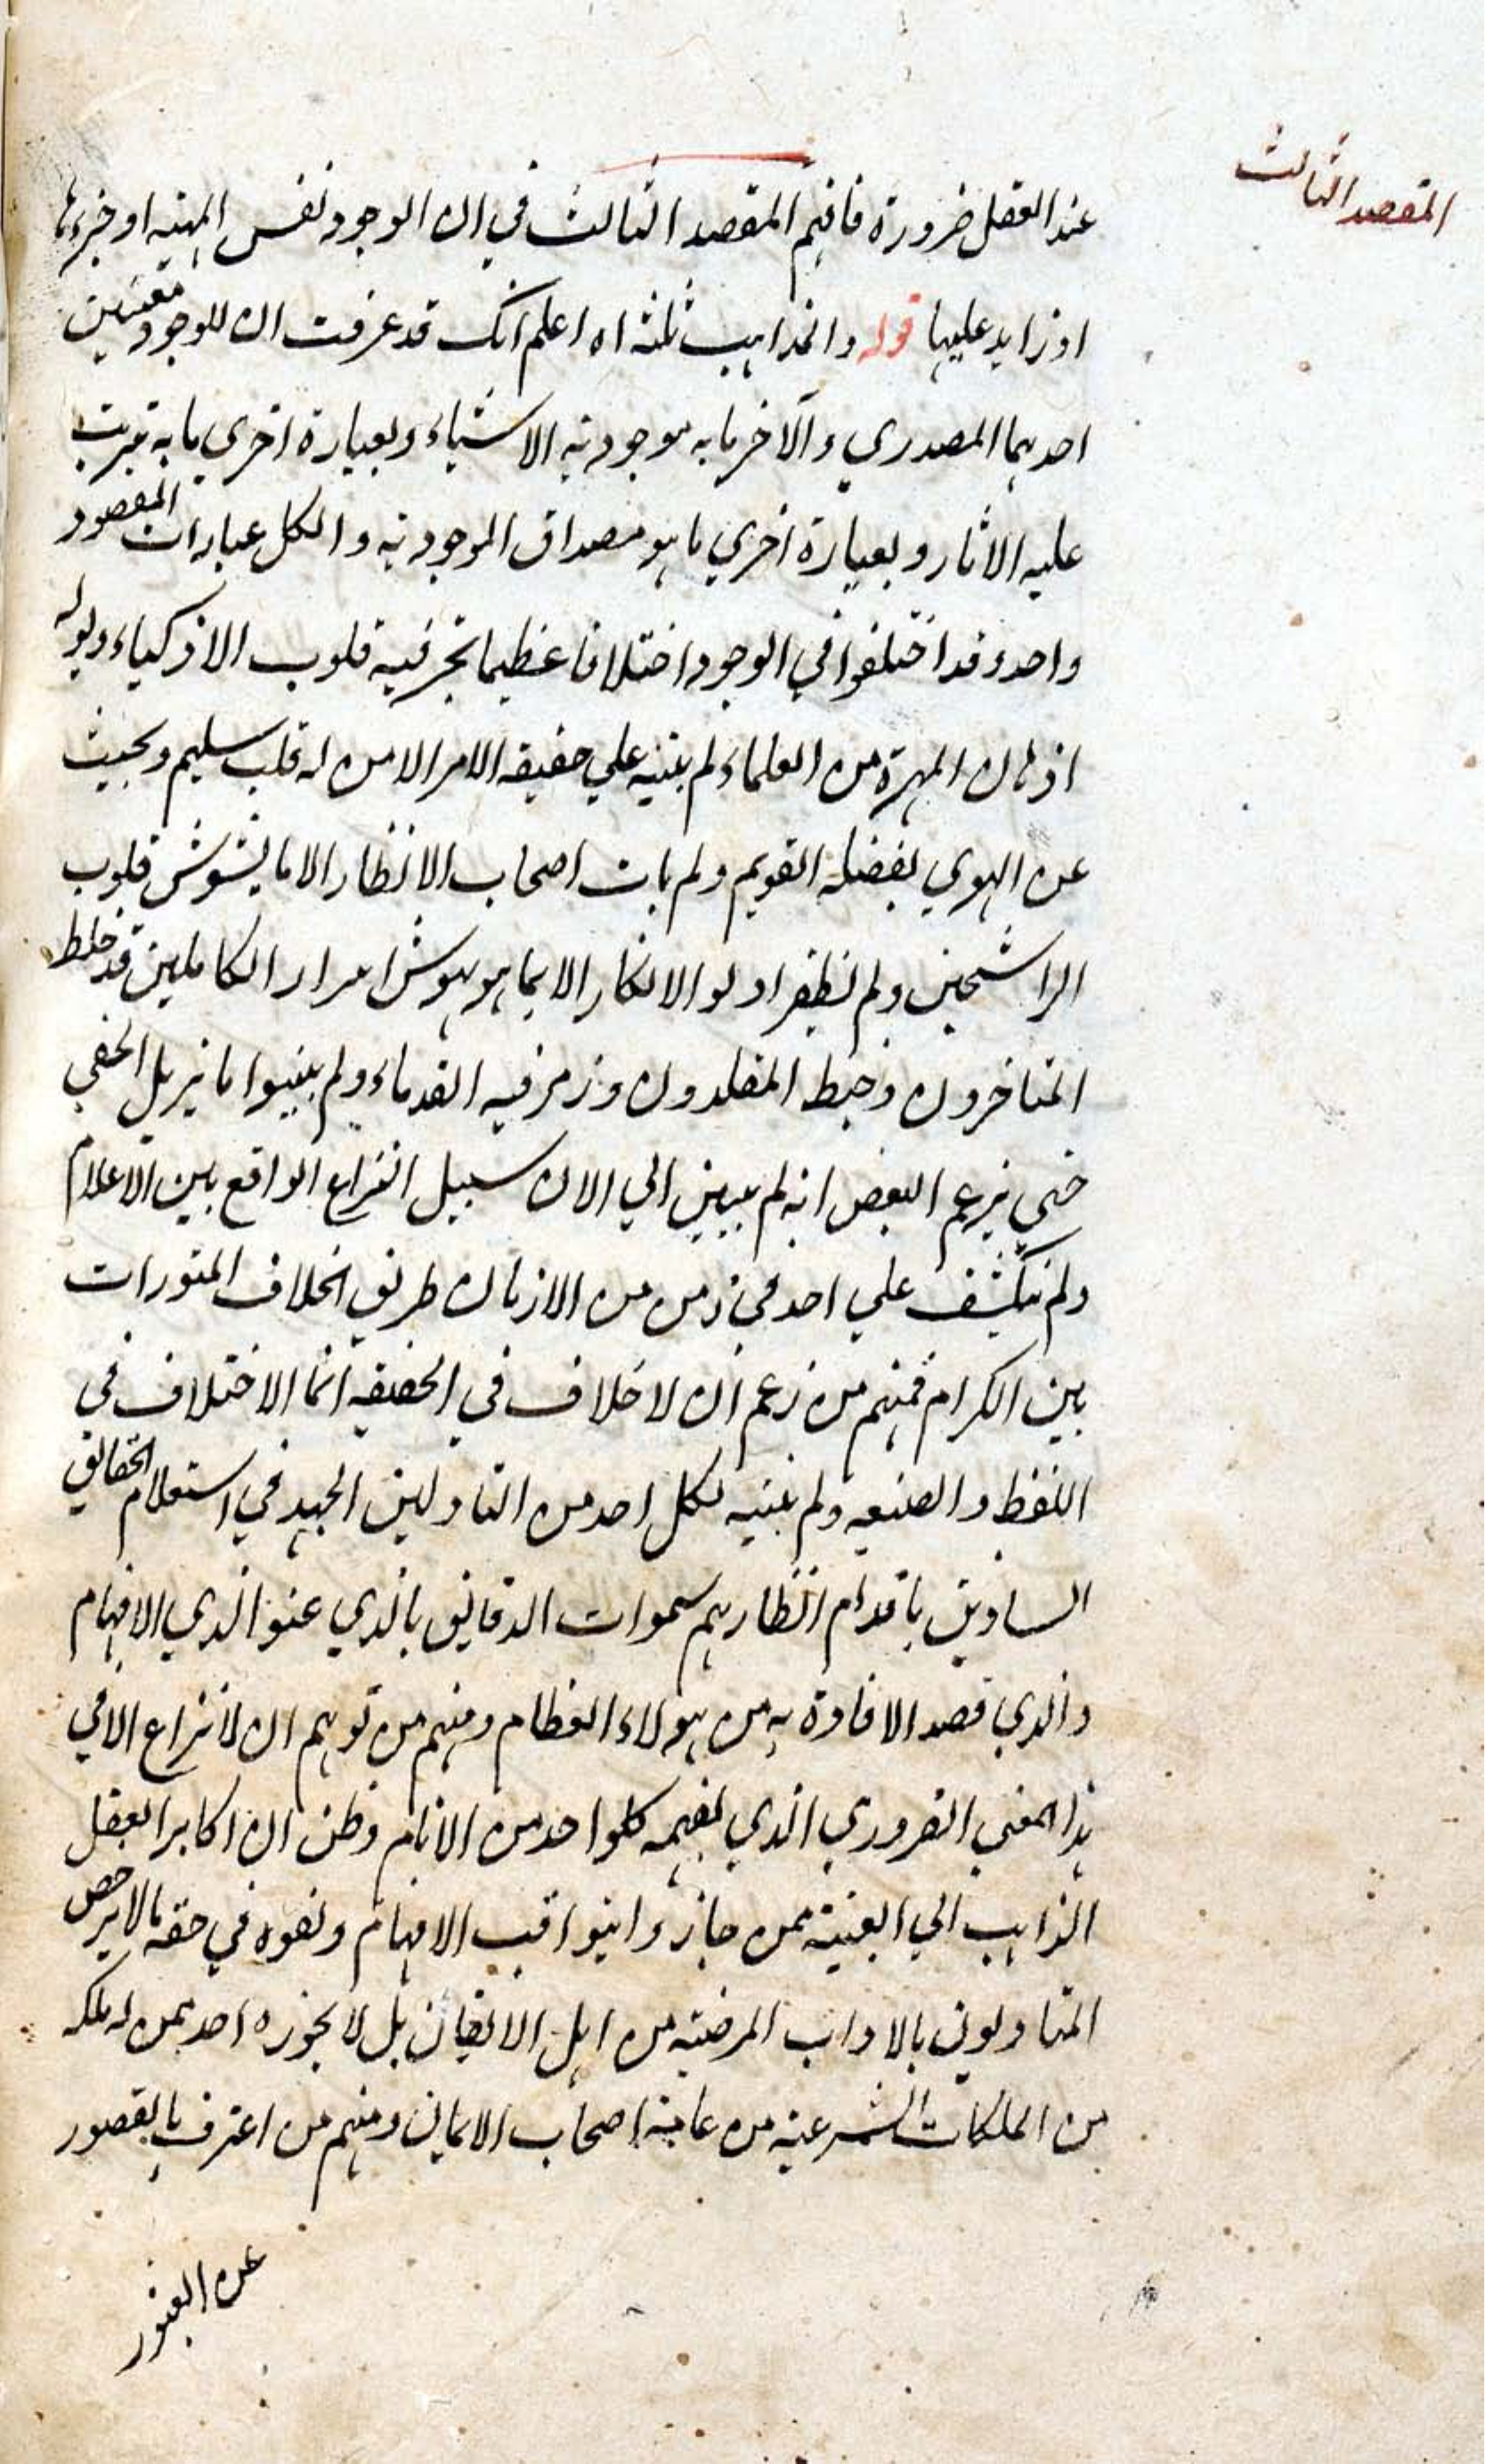 المقصد الثالث
عند العقل ضرورة فافهم المقصد الثالث في ان الوجود نفس المهية او جزءها
او زايد عليها قوله والمذاهب ثلثه اه اعلم انك قد عرفت ان للوجود معنيين
احدهما المصدري والآخر ما به موجودية الاشياء وبعبارة اخرى ما به ترتب
عليه الاثار وبعبارة اخري ما هو مصداق الموجودية والكل عبارات المقصود
واحد وقد اختلفوا في الوجود اختلافا عظيما تحر فيه قلوب الاذكياء ويوله
اذهان المهرة من العلماء ولم يتنبه علي حقيقه الامر الا من له قلب سليم وبحيث
عن الهوي بفضله القويم ولم يات اصحاب الانظار الا ما يشوش قلوب
الراسخين ولم يظفر اولو الافكار الا بما هو يهوش اسرار الكاملين قد خلط
المتاخرون وخبط المقلدون ورمز فيه القدماء ولم يبينوا ما يزيل الخفي
حتي زعم البعض انه لم يبين الي الان سبيل النزاع الواقع بين الاعلام
ولم ينكشف علي احد في زمن من الازمان طريق الخلاف المتورات
بين الكرام فمنهم من زعم ان لا خلاف في الحقيقه انما الاختلاف في
اللفظ والصنيعه ولم يتنبه لكل احد من التاولين الجهد في استعلام الحقايق
الساوين باقدام انظارهم سموات الدقايق بالذي عنو الذي الافهام
والذي قصد الافادة به من هولاء العظام ومنهم من توهم ان لا نزاع الا في
هذا المعني الضروري الذي يفهمه كلواحد من الانام وظن ان اكابر العقل
الذاهب الي العينية ممن جاز واثيوا قب الافهام وتفوه في حقه بما لا يرخص
المتاولون بالاداب المرضيه من اهل الايقان بل لا يجوزه احد ممن له ملكه
من الملكات الشرعية من عامة اصحاب الايمان ومنهم من اعترف بالقصور
عن العثور